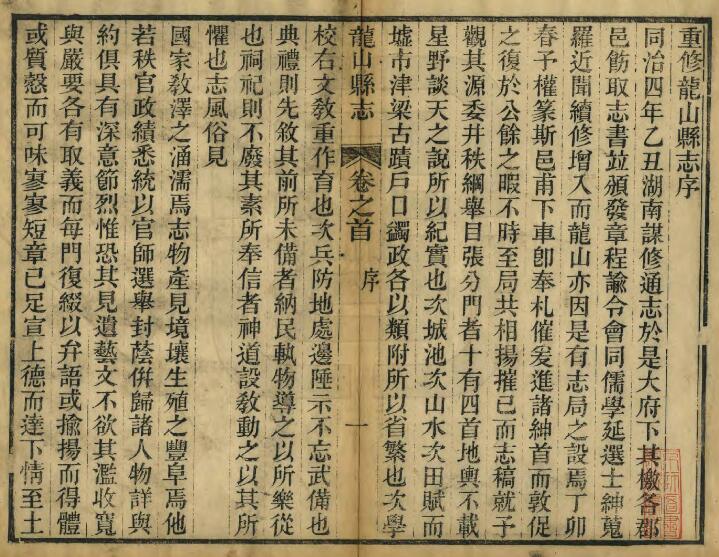 重修龍山縣志序
同治四年乙丑湖南謀修通志於是大府下其檄各郡
邑飭取志書並頒發章程諭令會同儒學延選士紳蒐
羅近聞續修增入而龍山亦因是有志局之設焉丁卯
春予權篆斯邑甫下車卽奉札催爰進諸紳首而敦促
之復於公餘之暇不時至局共相揚搉已而志稿就予
觀其源委井秩綱舉目張分門者十有四首地輿不載
星野談天之說所以紀實也次城池次山水次田賦而
墟市津梁古蹟戶口蠲政各以類附所以省繁也次學
龍山縣志 卷之首 序 一
校右文敎重作育也次兵防地處邊陲示不忘武備也
典禮則先敘其前所未備者納民軌物導之以所樂從
也祠祀則不廢其素所奉信者神道設敎動之以其所
懼也志風俗見
國家敎澤之涵濡焉志物產見境壤生殖之豐阜焉他
若秩官政績悉統以官師選舉封蔭倂歸諸人物詳與
約俱具有深意節烈惟恐其見遺藝文不欲其濫收寬
與嚴要各有取義而每門復綴以弁語或揄揚而得體
或質慤而可味寥寥短章已足宣上德而達下情至土